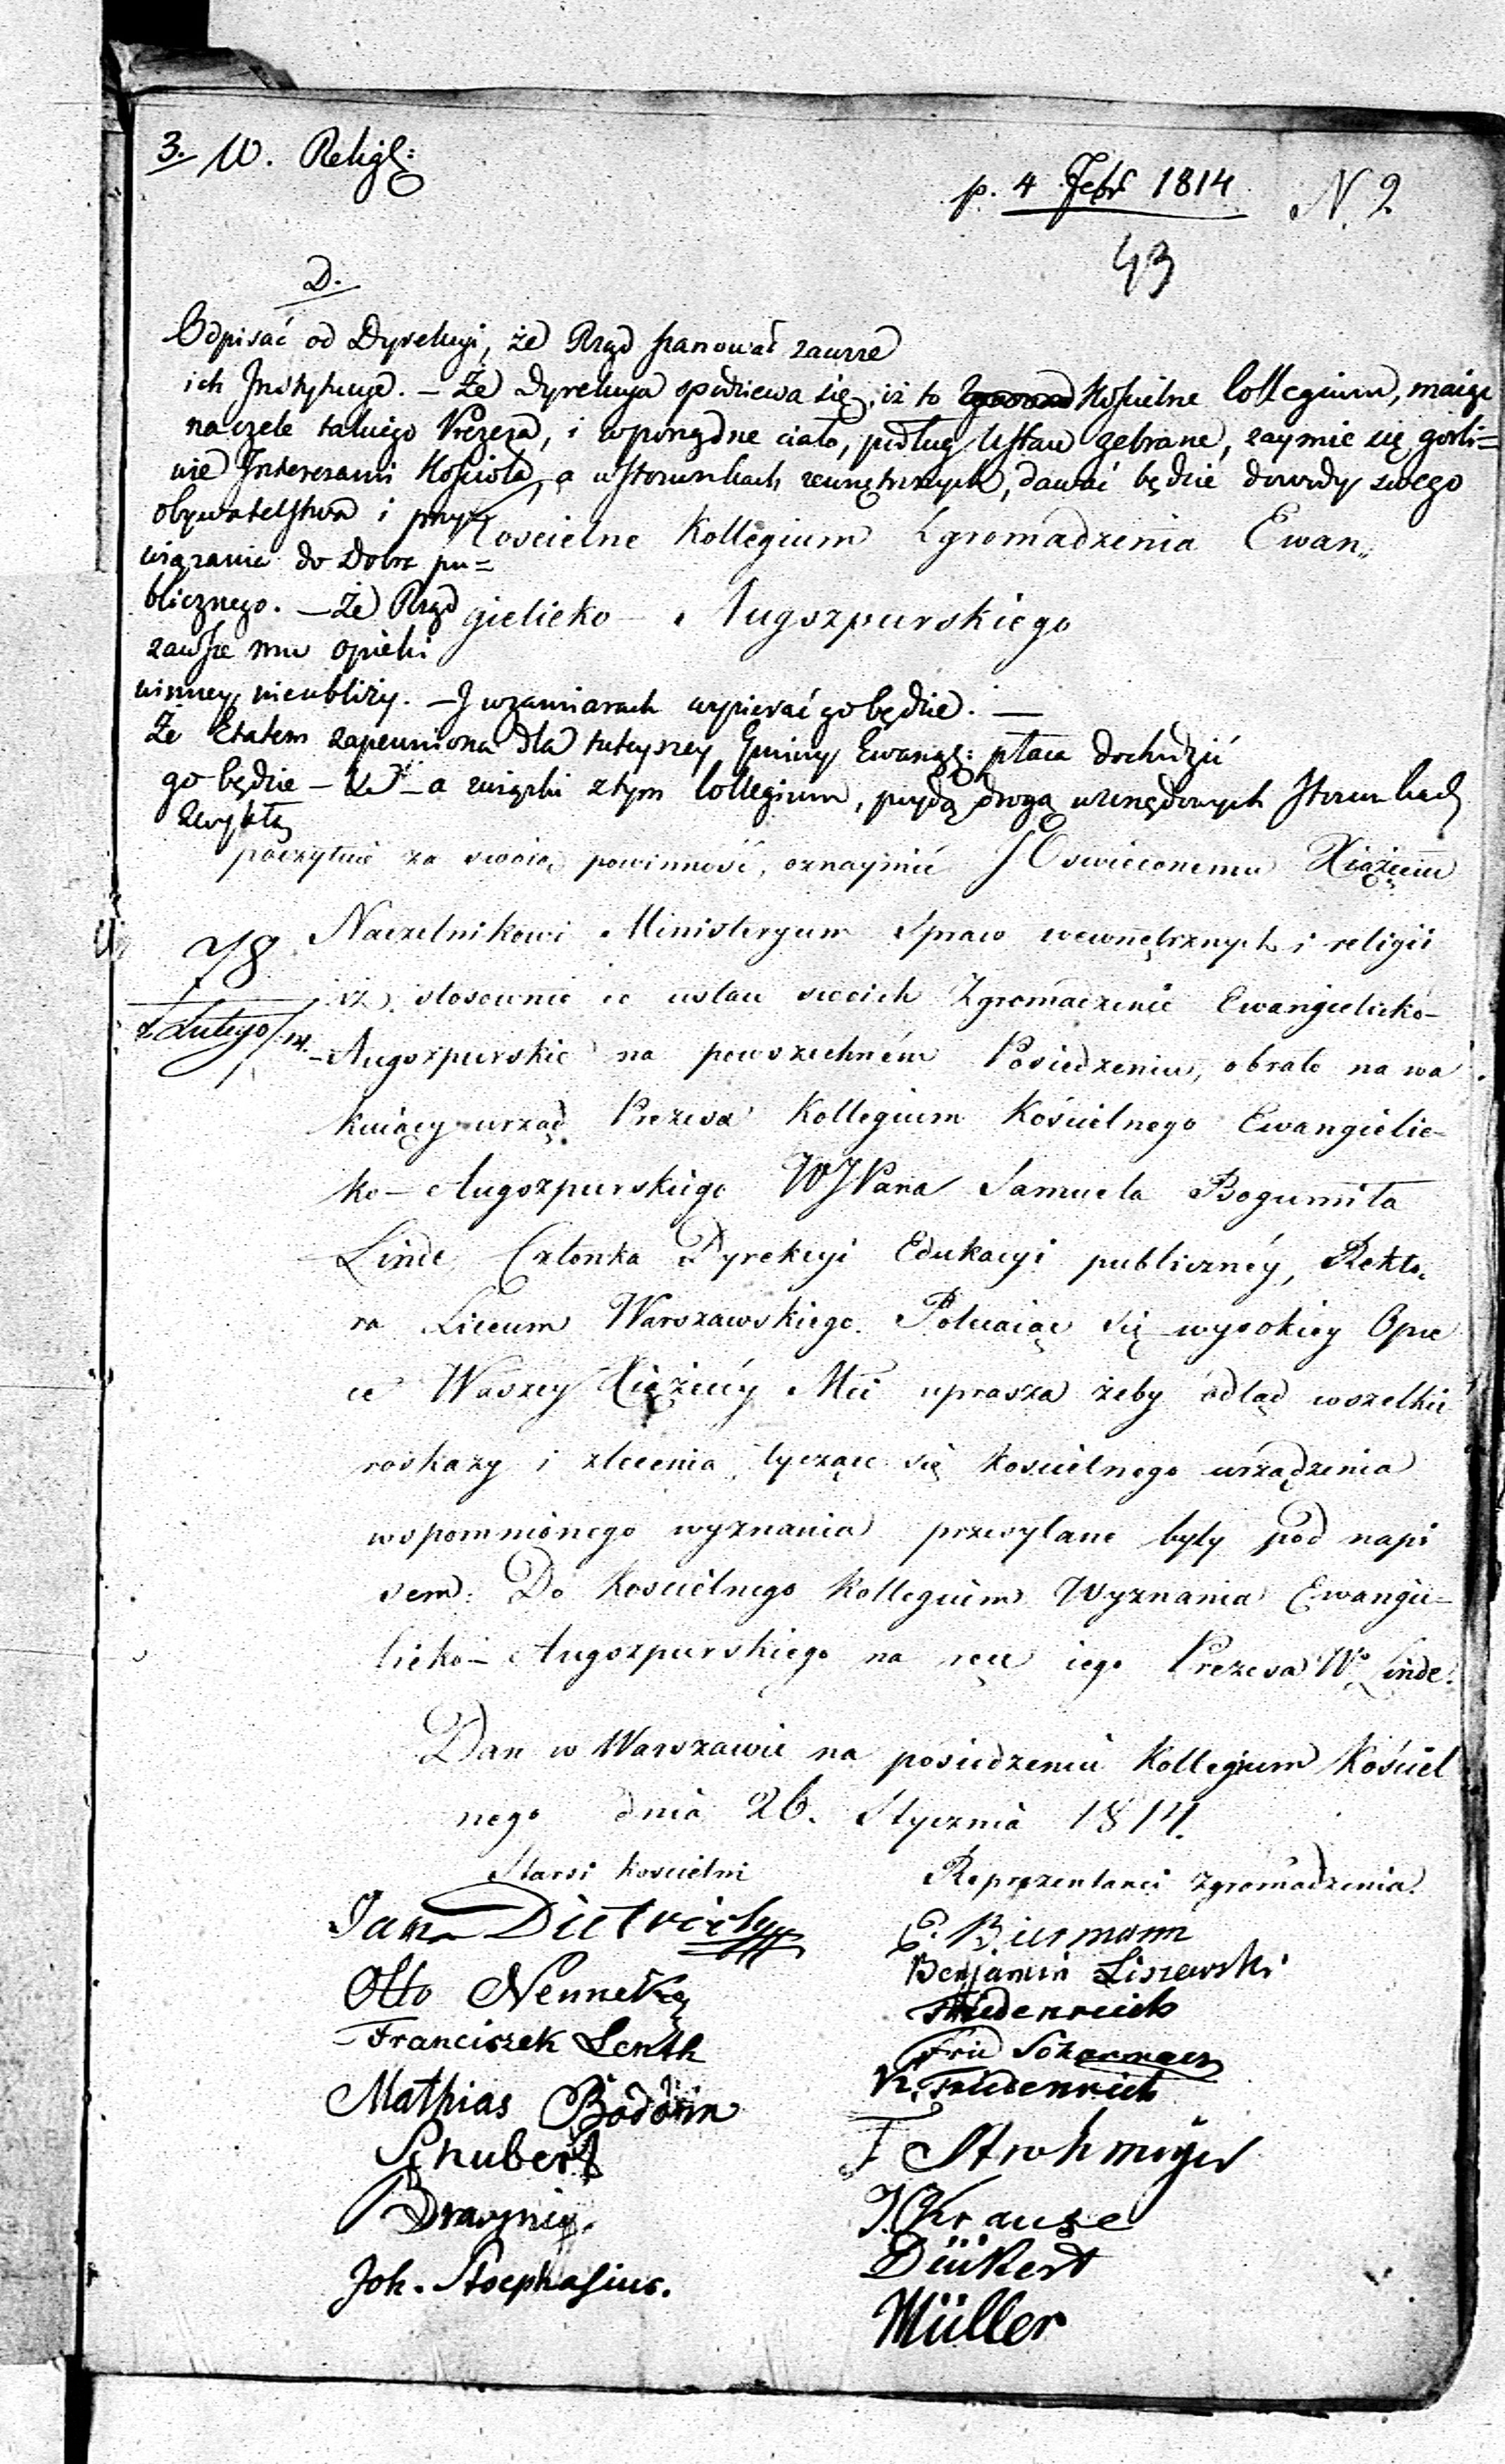 3. W. Religl:
p. 4 Febr 1814 N. 2
43
D.
Odpisać od Dyrekcyi, że Rząd szanował zawsze
ich Instytucye. – Że Dyrekcya spodziewa się, iż to Kościelne Collegium, maiąc
na czele takiego Prezesa, i w porządne ciało, podług Ustaw zebrane, zaymie się gorli=
wie Interesami Kościoła, a w stosunkach zewnętrznych, dawać będzie dowody swego
obywatelstwa i przy
wiązania do Dobra pu=
blicznego. – Że Rząd
zawsze mu opieki
winney nieubliży. – I w zamiarach wspierać go będzie. –
Że Etatem zapewniona dla tuteyszey Gminy Ewangl: płaca dochodzić
go będzie – a związki z tym Collegium, póydą drogą urzędowych Stosunków
zwykłą
Koscielne Kollegium Zgromadzenia Ewan„
gielicko – Augszpurskiego
poczytuie za swoię powinność, oznaymić JOswieconemu Xiążęciu
Naczelnikowi Ministeryum Spraw wewnętrznych i religii
78
2 Lutego/14.
iż stosownie do ustaw swoich Zgromadzenie Ewangielicko–
–Augszpurskie na powszechném Posiedzeniu, obrało na wa
kuiący urząd Prezesa Kollegium Kościelnego Ewangielic–
ko – Augszpurskiego WJPana Samuela Bogumiła
Linde, Członka Dyrekcyi Edukacyi publicznéy, Rekto„
ra Liceum Warszawskiego. Polecaiąc się wysokiey Opie
ce Waszey Xiążęcéy Mci uprasza żeby odtąd wszelkie
roskazy i zlecenia tyczące się kościelnego urządzenia
wspomnionego wyznania przesyłane były pod napi
sem: Do Koscielnego Kollegium Wyznania Ewangie–
licko – Augszpurskiego na ręce iego Prezesa Wo Linde.
Dan w Warszawie na posiedzeniu Kollegium Kościel
nego dnia 26. Stycznia 1814.
Starsi Koscielni
Reprezentanci Zgromadzenia.
Jan Dietrich
Otto Nenneke
Franciszek Lenth
Mathias Bodonn
Schubert
Joh. Stoephasius.
E. Biermann
Benjamin Liszewski
Friedenreich
Frid
K. Fridenreich
F Strohmeyer
J. Krause
Dückert
Müller